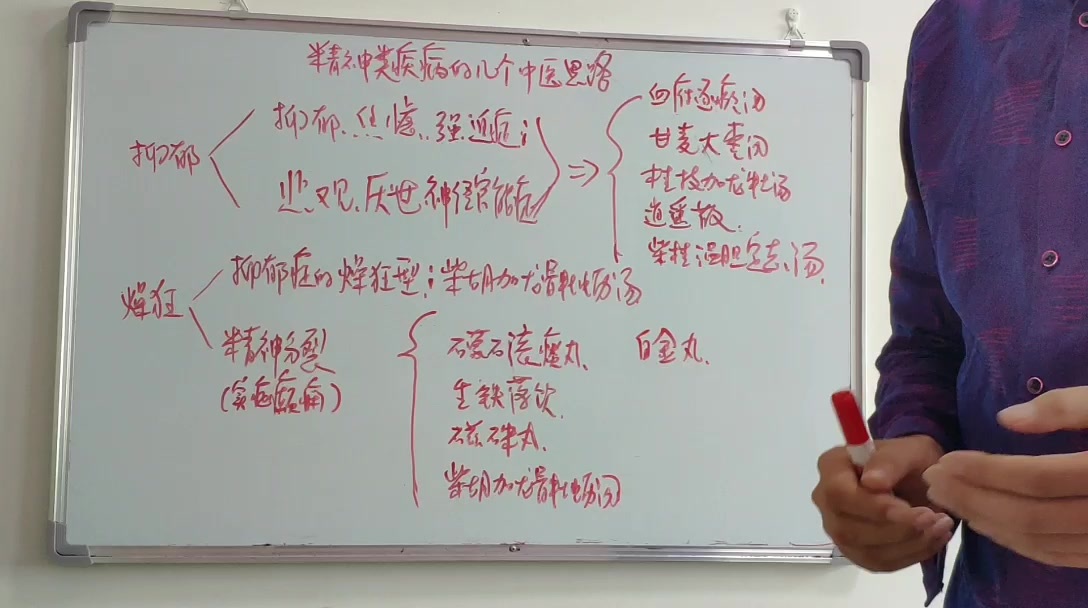 精神类疾病的几个中医思路
抑郁
抑郁、焦虑、强迫症；
悲观、厌世、神经官能症
⇒
血府逐瘀汤
甘麦大枣汤
桂枝加龙牡汤
逍遥散.
柴桂温胆定志汤.
燥狂
抑郁症的燥狂型；柴胡加龙骨牡蛎汤
精神分裂
(实症癫痫)
礞石滚痰丸、 白金丸.
生铁落饮.
磁硃丸.
柴胡加龙骨牡蛎汤